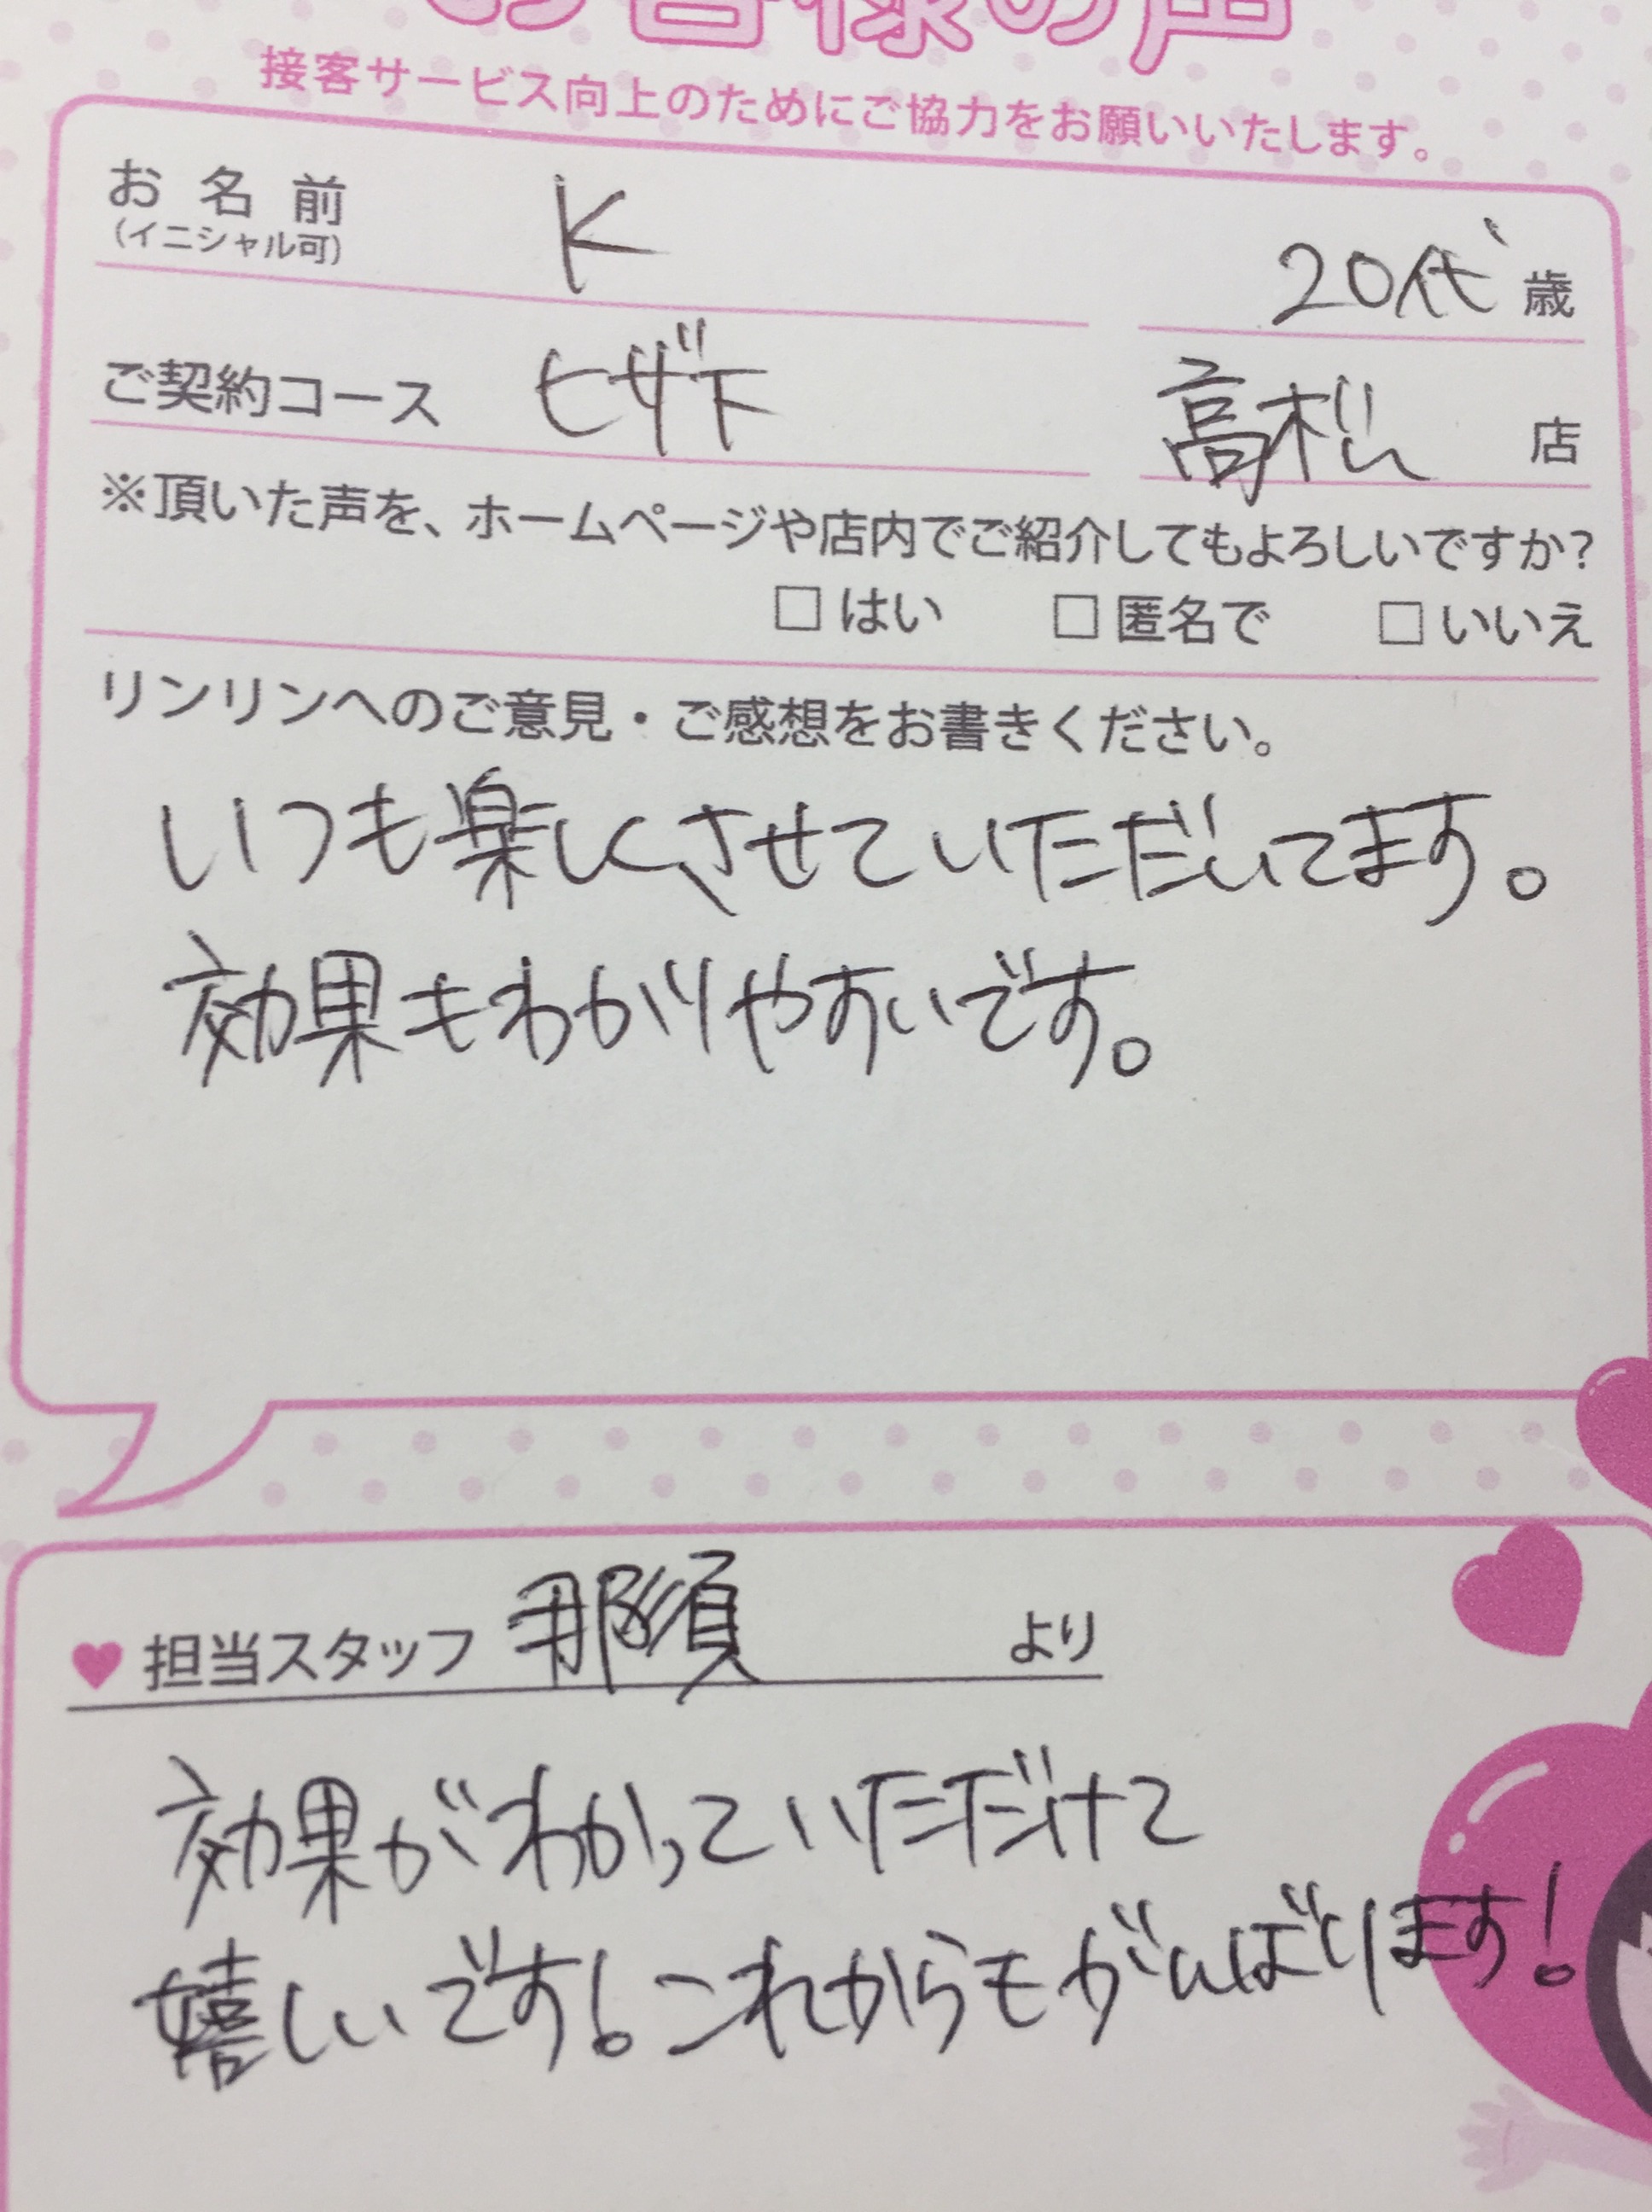 お客様の声
接客サービス向上のためにご協力をお願いいたします。
お名前 K 20代 歳
(イニシャル可)
ご契約コース ヒザ下 高松 店
※頂いた声を、ホームページや店内でご紹介してもよろしいですか？
□はい □匿名で □いいえ
リンリンへのご意見・ご感想をお書きください。
いつも楽しくさせていただいてます。
効果もわかりやすいです。
♥担当スタッフ 那須 より
効果がわかっていただけて
嬉しいです！これからもがんばります！